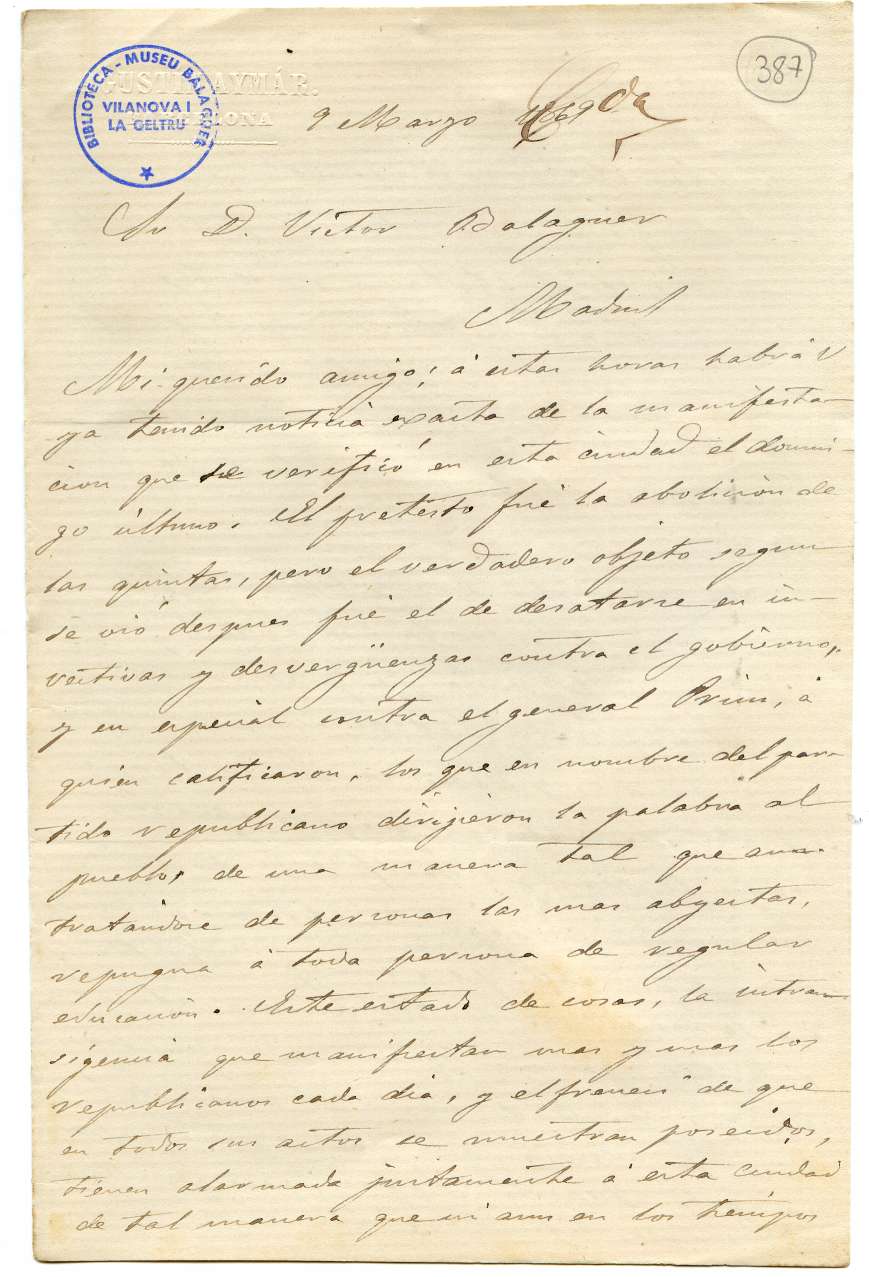 387
BIBLIOTECA - MUSEU BALAGUER
VILANOVA I
LA GELTRU
AYMÁR.
9 Marzo 1869 Cda
Sr D. Victor Balaguer
Madrid
Mi querido amigo: á estas horas habrá V
ya tenido noticia exacta de la manifesta-
cion que se verificó en esta ciudad el domin-
go último. El pretesto fué la abolicion de
las quintas, pero el verdadero objeto segun
se vió despues fué el de desatarse en in-
vectivas y desvergüenzas contra el gobierno,
y en especial contra el general Prim, á
quien calificaron, los que en nombre del par-
tido republicano dirijieron la palabra al
pueblo, de una manera tal que aun
tratándose de personas las mas abyectas,
repugna á toda persona de regular
educacion. Este estado de cosas, la intran-
sigencia que manifiestan mas y mas los
republicanos cada dia, y el frenesí de que
en todos sus actos se muestran poseidos,
tienen alarmada justamente á esta ciudad
de tal manera que ni aun en los tiempos